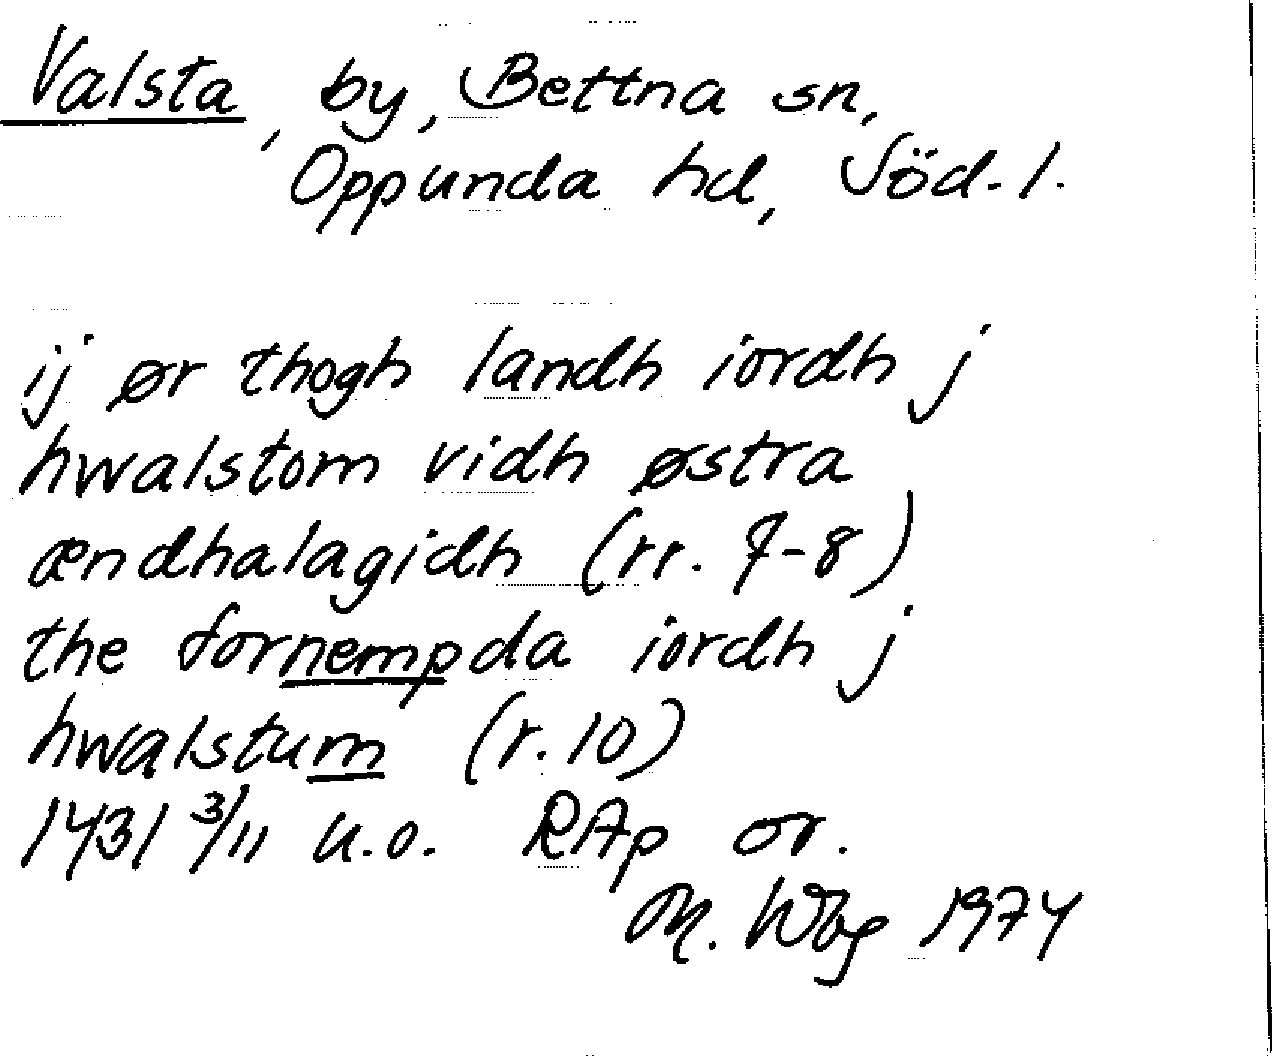 Valsta, by, Bettna sn,
Oppunda hd, Söd. l.
ij ør thogh landh iordh j
hwalstom vidh østra
ændhalagidh (rr. 7-8)
the fornempda iordh j
hwalstum (r. 10)
1431 3/11 u.o. RAp or.
M. Wbg 1974